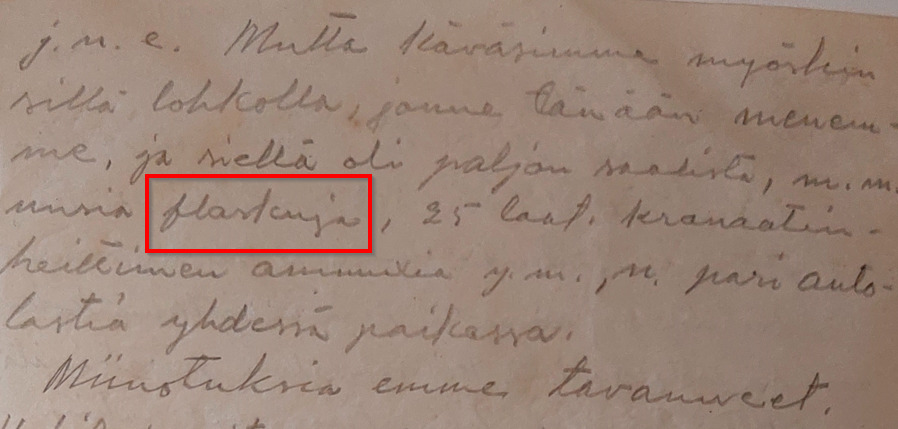 j.n.e. Mutta käväsimme myöskin
sillä lohkolla, jonne tänään menem-
me, ja siellä oli paljon saalista, m.m.
uusia flaskuja, 25 laat. kranaatin-
heittimen ammuxia y.m., n. pari auto-
lastia yhdessä paikassa.
Miinotuksia emme tavanneet.